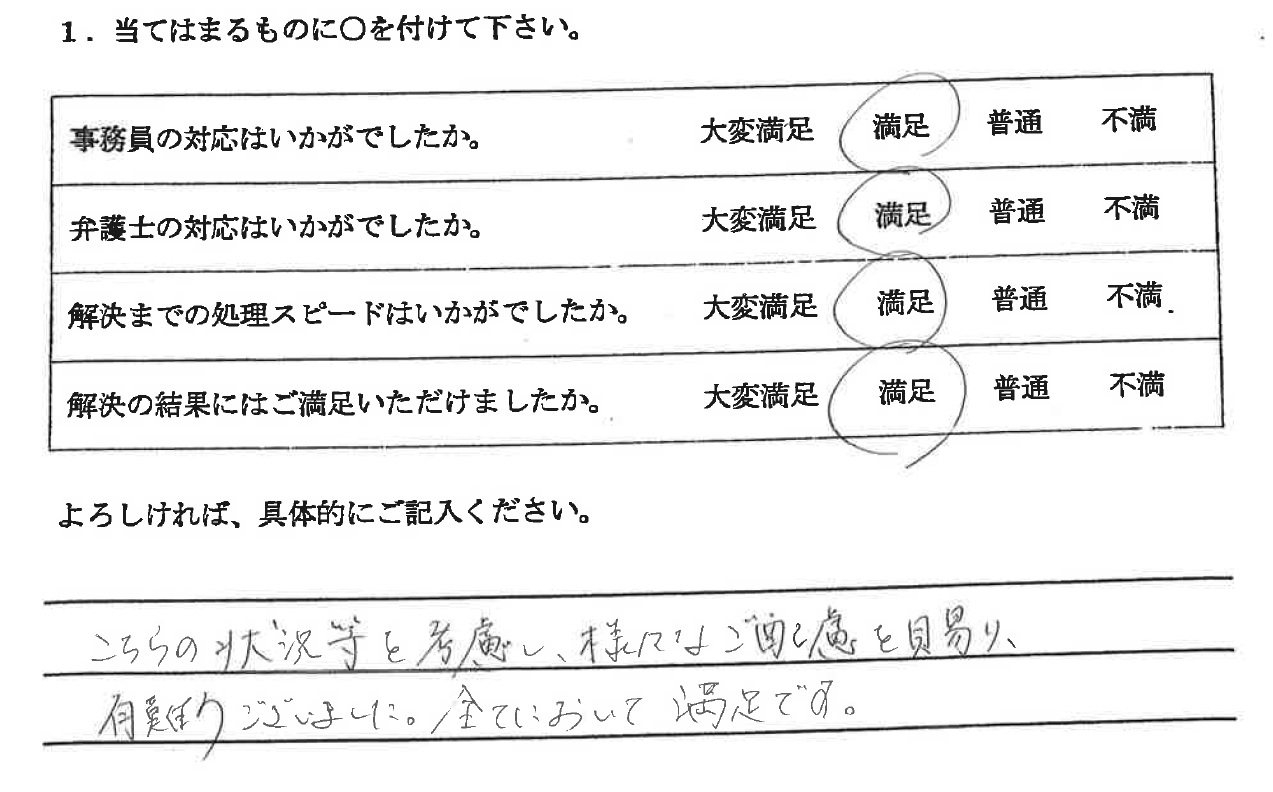 1．当てはまるものに〇を付けて下さい。
事務員の対応はいかがでしたか。 大変満足 満足 普通 不満
弁護士の対応はいかがでしたか。 大変満足 満足 普通 不満
解決までの処理スピードはいかがでしたか。 大変満足 満足 普通 不満
解決の結果にはご満足いただけましたか。 大変満足 満足 普通 不満
よろしければ、具体的にご記入ください。
こちらの状況等を考慮し、様々なご配慮を賜り、
有難うございました。全てにおいて満足です。